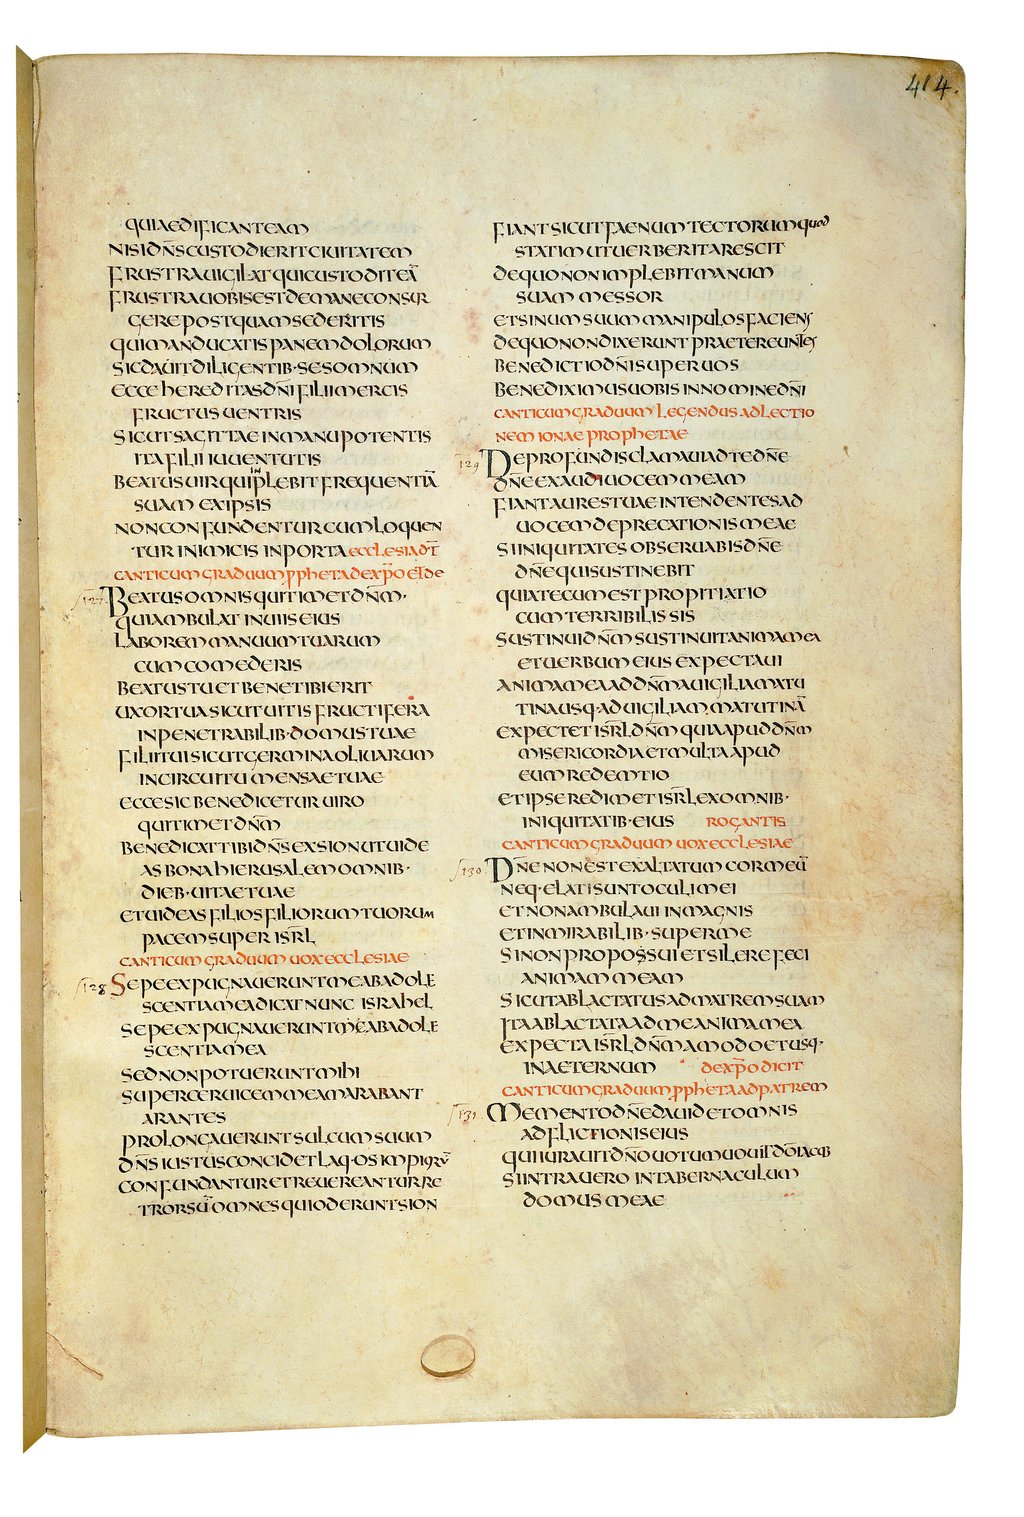 414.
QUIAEDIFICANTEAM
NISIDN̄SCUSTODIERITCIUITATEM
FRUSTRAUIGILATQUICUSTODITEĀ
FRUSTRAUOBISESTDEMANECONSUR
GEREPOSTQUAMSEDERITIS
QUIMANDUCATISPANEMDOLORUM
SICDAUITDILIGENTIB·SESOMNUM
ECCEHEREDITASDN̄IFILIIMERCIS
FRUCTUSUENTRIS
SICUTSAGITTAEINMANUPOTENTIS
ITAFILIIIUUENTUTIS
BEATUSUIRQUIINPLEBITFREQUENTIĀ
SUAMEXIPSIS
NONCONFUNDENTURCUMLOQUEN
TURINIMICISINPORTA ECCLESIADT̄
CANTICUMGRADUUMP̄PHETADEXP̄OETDE
127 BEATUSOMNISQUITIMETDN̄M·
QUIAMBULATINUIISEIUS
LABOREMMANUUMTUARUM
CUMCOMEDERIS
BEATUSTUETBENETIBIERIT
UXORTUASICUTUITISFRUCTIFERA
INPENETRABILIB·DOMUSTUAE
FILIITUISICUTGERMINAOLIUARUM
INCIRCUITUMENSAETUAE
ECCESICBENEDICETURUIRO
QUITIMETDN̄M
BENEDICATTIBIDN̄SEXSIONUTUIDE
ASBONAHIERUSALEMOMNIB·
DIEB·UITAETUAE
ETUIDEASFILIOSFILIORUMTUORUM
PACEMSUPERISRL̄
CANTICUMGRADUUMUOXECCLESIAE
128 SEPEEXPUGNAUERUNTMEABADOLE
SCENTIAMEADICATNUNCISRAHEL
SEPEEXPUGNAUERUNTMEABADOLE
SCENTIAMEA
SEDNONPOTUERUNTMIHI
SUPERCERUICEMMEAMARABANT
ARANTES
PROLONGAUERUNTSULCUMSUUM
DN̄SIUSTUSCONCIDETLAQ·OSIMPIORŪ
CONFUNDANTURETREUEREANTURRE
TRORSŪOMNESQUIODERUNTSION
FIANTSICUTFAENUMTECTORUMQUOD
STATIMUTUERBERITARESCIT
DEQUONONIMPLEBITMANUM
SUAMMESSOR
ETSINUMSUUMMANIPULOSFACIENS
DEQUONONDIXERUNTPRAETEREUNTES
BENEDICTIODN̄ISUPERUOS
BENEDIXIMUSUOBISINNOMINEDN̄I
CANTICUMGRADUUMLEGENDUSADLECTIO
NEMIONAEPROPHETAE
129 DEPROFUNDISCLAMAUIADTEDN̄E
DN̄EEXAUDIUOCEMMEAM
FIANTAURESTUAEINTENDENTESAD
UOCEMDEPRECATIONISMEAE
SIINIQUITATESOBSERUABISDN̄E
DN̄EQUISUSTINEBIT
QUIATECUMESTPROPITIATIO
CUMTERRIBILISSIS
SUSTINUIDN̄MSUSTINUITANIMAMEA
ETUERBUMEIUSEXPECTAUI
ANIMAMEAADDN̄MAUIGILIAMATU
TINAUSQ·ADUIGILIAMMATUTINĀ
EXPECTETISRL̄DN̄MQUIAAPUDDN̄M
MISERICORDIAETMULTAAPUD
EUMREDEMTIO
ETIPSEREDIMETISRL̄EXOMNIB·
INIQUITATIB·EIUS ROGANTIS
CANTICUMGRADUUMUOXECCLESIAE
130 DN̄ENONESTEXALTATUMCORMEŪ
NEQ·ELATISUNTOCULIMEI
ETNONAMBULAUIINMAGNIS
ETINMIRABILIB·SUPERME
SINONPROPOSSUIETSILEREFECI
ANIMAMMEAM
SICUTABLACTATUSADMATREMSUAM
ITAABLACTATAADMEANIMAMEA
EXPECTAISRL̄DN̄MAMODOETUSQ·
INAETERNUM DEXP̄ODICIT
CANTICUMGRADUUMP̄PHETAADPATREM
131 MEMENTODN̄EDAUIDETOMNIS
ADFLICTIONISEIUS
QUIIURAUITDN̄OUOTUMUOUITDŌIACOB
SIINTRAUEROINTABERNACULUM
DOMUSMEAE